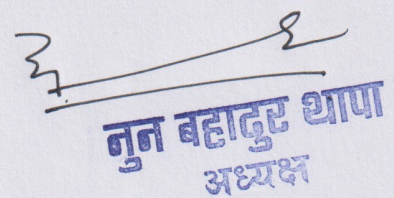 नुन बहादुर थापा
अध्यक्ष